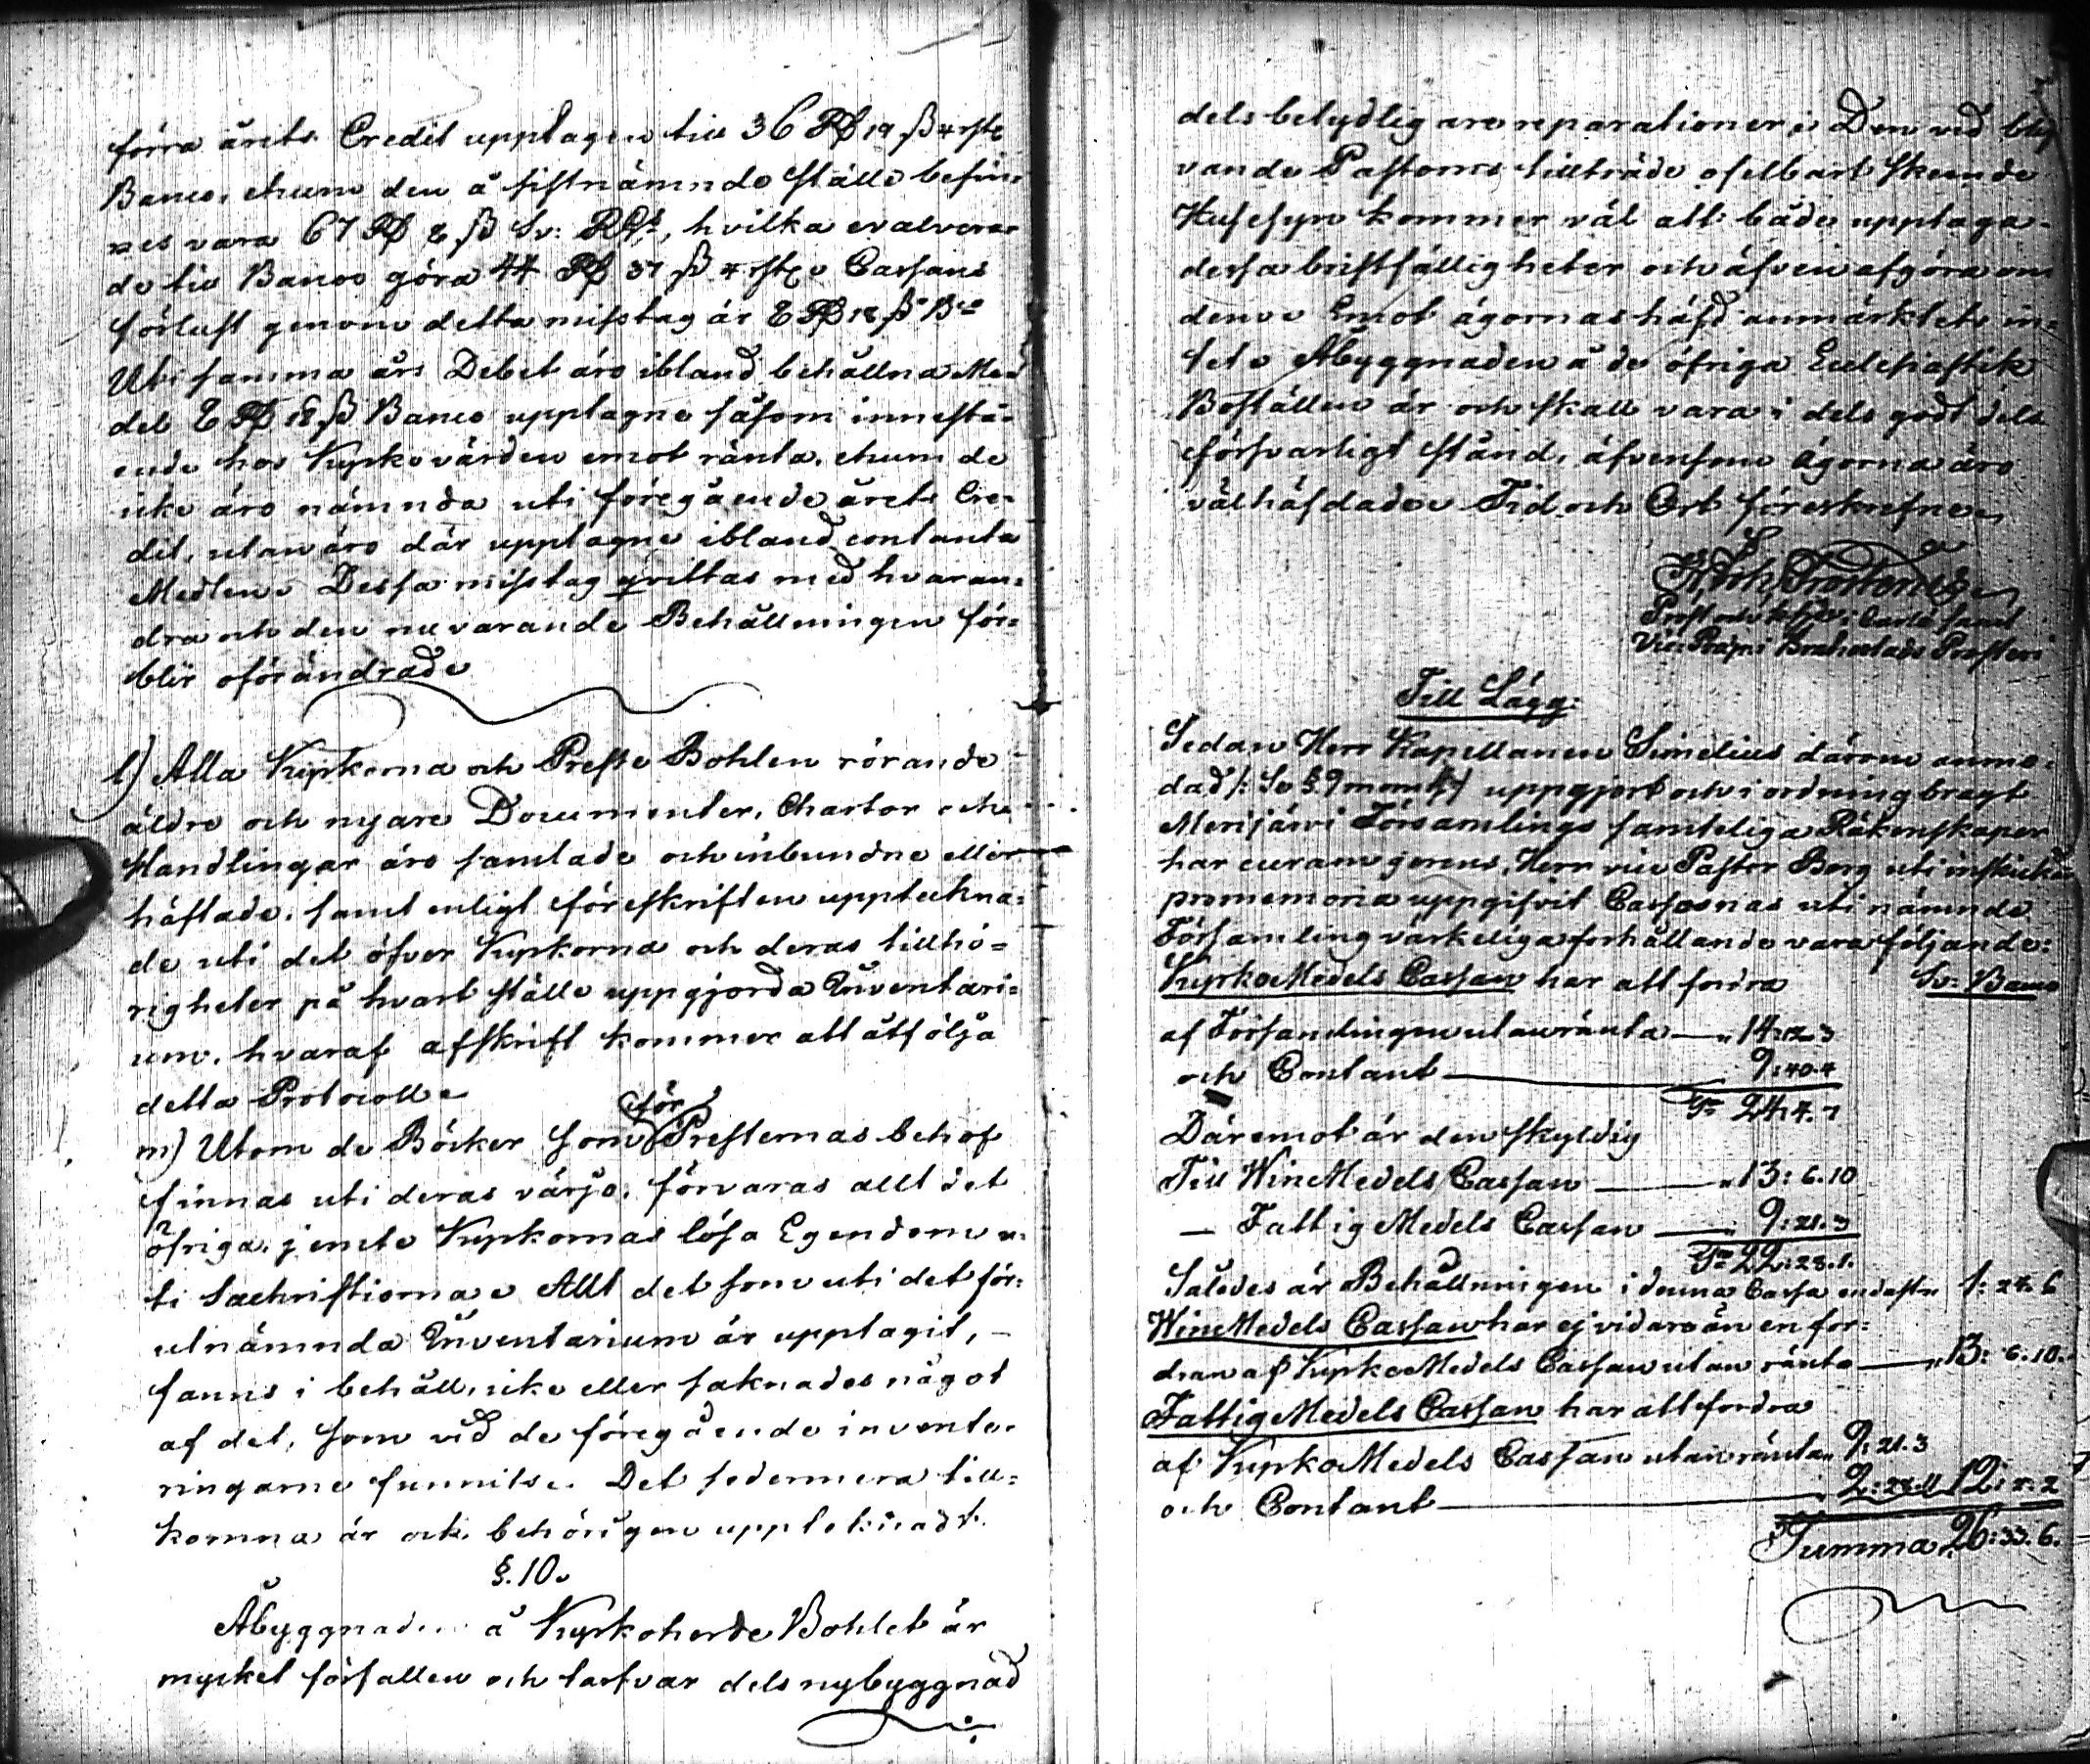 förra årets Credit upptagen till 36 Rd 19 ß 4 rst
Banco, ehuru den å sistnämnde ställe befin-
nes vara 67 Rd 8 ß Sv: RGs, hvilka evalvera-
de till Banco göra 44 Rd 37 ß 4 rst. Cassans
förlust genom detta misstag är 8 Rd 18 ß Bco
Uti samma års Debet äro ibland behållna Me-
del 8 Rd 18 ß Banco upptagne såsom innestå-
ende hos Kyrkovärden emot ränta, ehuru de
icke äro nämnda uti föregående årets Cre-
dit, utan äro där upptagne ibland contanta
Medlen. Dessa misstag qvittas med hvaran-
dra och den nuvarande Behållningen för-
blir oförändrad.
l) Alla Kyrkorna och Preste Bohlen rörande
äldre och nyare Documenter, Chartor och
Handlingar äro samlade och inbundne eller
häftade, samt enligt föreskriften uppteckna-
de uti det öfver Kyrkorna och deras tillhö-
righeter på hvart ställe uppgjorda Inventari-
um, hvaraf afskrift kommer att åtfölja
detta Protocoll.
m) Utom de Böcker som för Presternas behof
finnas uti deras värjo, förvaras allt det
öfriga, jemte Kyrkornas lösa Egendom u-
ti Sachristiorna. Allt det som uti det för-
utnämnda Inventarium är upptagit,
fanns i behåll, icke eller saknades något
af det, som vid de föregående invente-
ringarne funnits. Det sedermera till-
komna är ock behörigen upptecknadt.
§. 10.
Åbyggnaden å Kyrkoherde Bohlet är
mycket förfallen och tarfvar dels nybyggnad
dels betydligare reparationer. Den vid bli-
vande Pastorns tillträde ofelbart skeende
Husesyn kommer väl att både upptaga
dessa bristfälligheter och äfven afgöra om
dem. Emot ägornas häfd anmärktes in-
tet. Åbyggnaden å de öfriga Ecclesiastik
Boställen är och skall vara i dels godt dels
försvarligt stånd, äfvensom ägorna äro
välhäfdade. Tid och Ort föreskrefne.
Vic: Präp: i Brahestads Prosteri
Till Lägg:
Sedan Herr Kapellanen Simelius därom anmo-
dad /: Se §. 9 mom: / uppgjort och i ordning bragt
Merijärvi Församlings samteliga Räkenskaper
har curam gerens, Herr vice Pastor Borg uti inskickad
promemoria uppgifvit Cassornas uti nämnde
Församling värkeliga förhållande vara följande:
KyrkoMedels Cassan har att fordra Sv: Banco
af Församlingen utan ränta — " 14:12.3
och Contant — 9:40.4
Sr 24:4.7
Däremot är den skyldig
Till WineMedels Cassan — " 13:6.10
— Fattig Medels Cassan — 9:21.3
Sr 22:28.1.
Således är Behållningen i denna Cassa endast " 1:24.6
WineMedels Cassan har ej vidare än en for-
dran af KyrkoMedels Cassan utan ränta — " 13:6.10.
FattigMedels Cassan har att fordra
af KyrkoMedels Cassan utan ränta " 9:21.3
och Contant — 2:28.11 12:2.2
Summa 26:33.6.